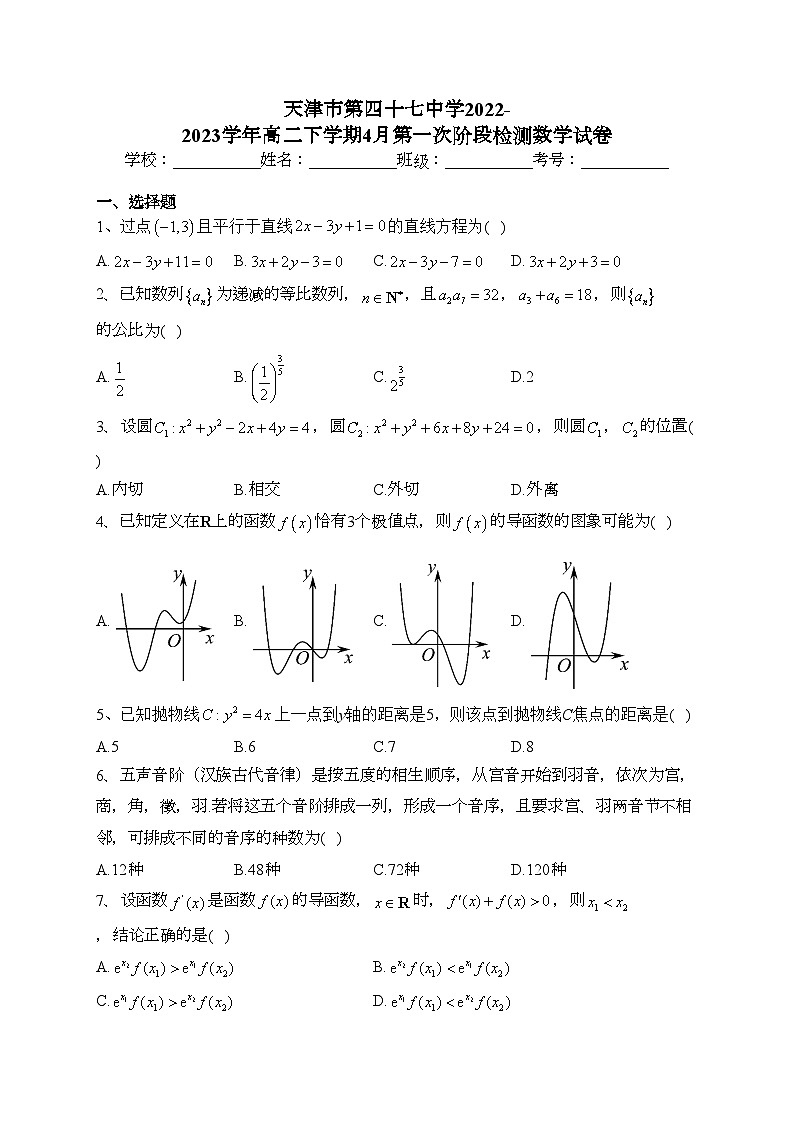 天津市第四十七中学2022-
2023学年高二下学期4月第一次阶段检测数学试卷
学校：___________姓名：___________班级：___________考号：___________
一、选择题
1、过点(−1,3)且平行于直线2x−3y+1=0的直线方程为( )
A. 2x−3y+11=0 B. 3x+2y−3=0 C. 2x−3y−7=0 D. 3x+2y+3=0
2、已知数列{aₙ}为递减的等比数列，n∈N*，且a₂a₇=32，a₃+a₆=18，则{aₙ}
的公比为( )
A. 1/2 B. (1/2)^(3/5) C. 2^(3/5) D.2
3、设圆C₁:x²+y²−2x+4y=4，圆C₂:x²+y²+6x+8y+24=0，则圆C₁，C₂的位置(
)
A.内切 B.相交 C.外切 D.外离
4、已知定义在R上的函数f(x)恰有3个极值点，则f(x)的导函数的图象可能为( )
A. y O x B. y O x C. y O x D. y O x
5、已知抛物线C:y²=4x上一点到y轴的距离是5，则该点到抛物线C焦点的距离是( )
A.5 B.6 C.7 D.8
6、五声音阶（汉族古代音律）是按五度的相生顺序，从宫音开始到羽音，依次为宫，
商，角，徵，羽.若将这五个音阶排成一列，形成一个音序，且要求宫、羽两音节不相
邻，可排成不同的音序的种数为( )
A.12种 B.48种 C.72种 D.120种
7、设函数f'(x)是函数f(x)的导函数，x∈R时，f′(x)+f(x)>0，则x₁<x₂
，结论正确的是( )
A. e^(x₂)f(x₁)>e^(x₁)f(x₂) B. e^(x₂)f(x₁)<e^(x₁)f(x₂)
C. e^(x₁)f(x₁)>e^(x₂)f(x₂) D. e^(x₁)f(x₁)<e^(x₂)f(x₂)